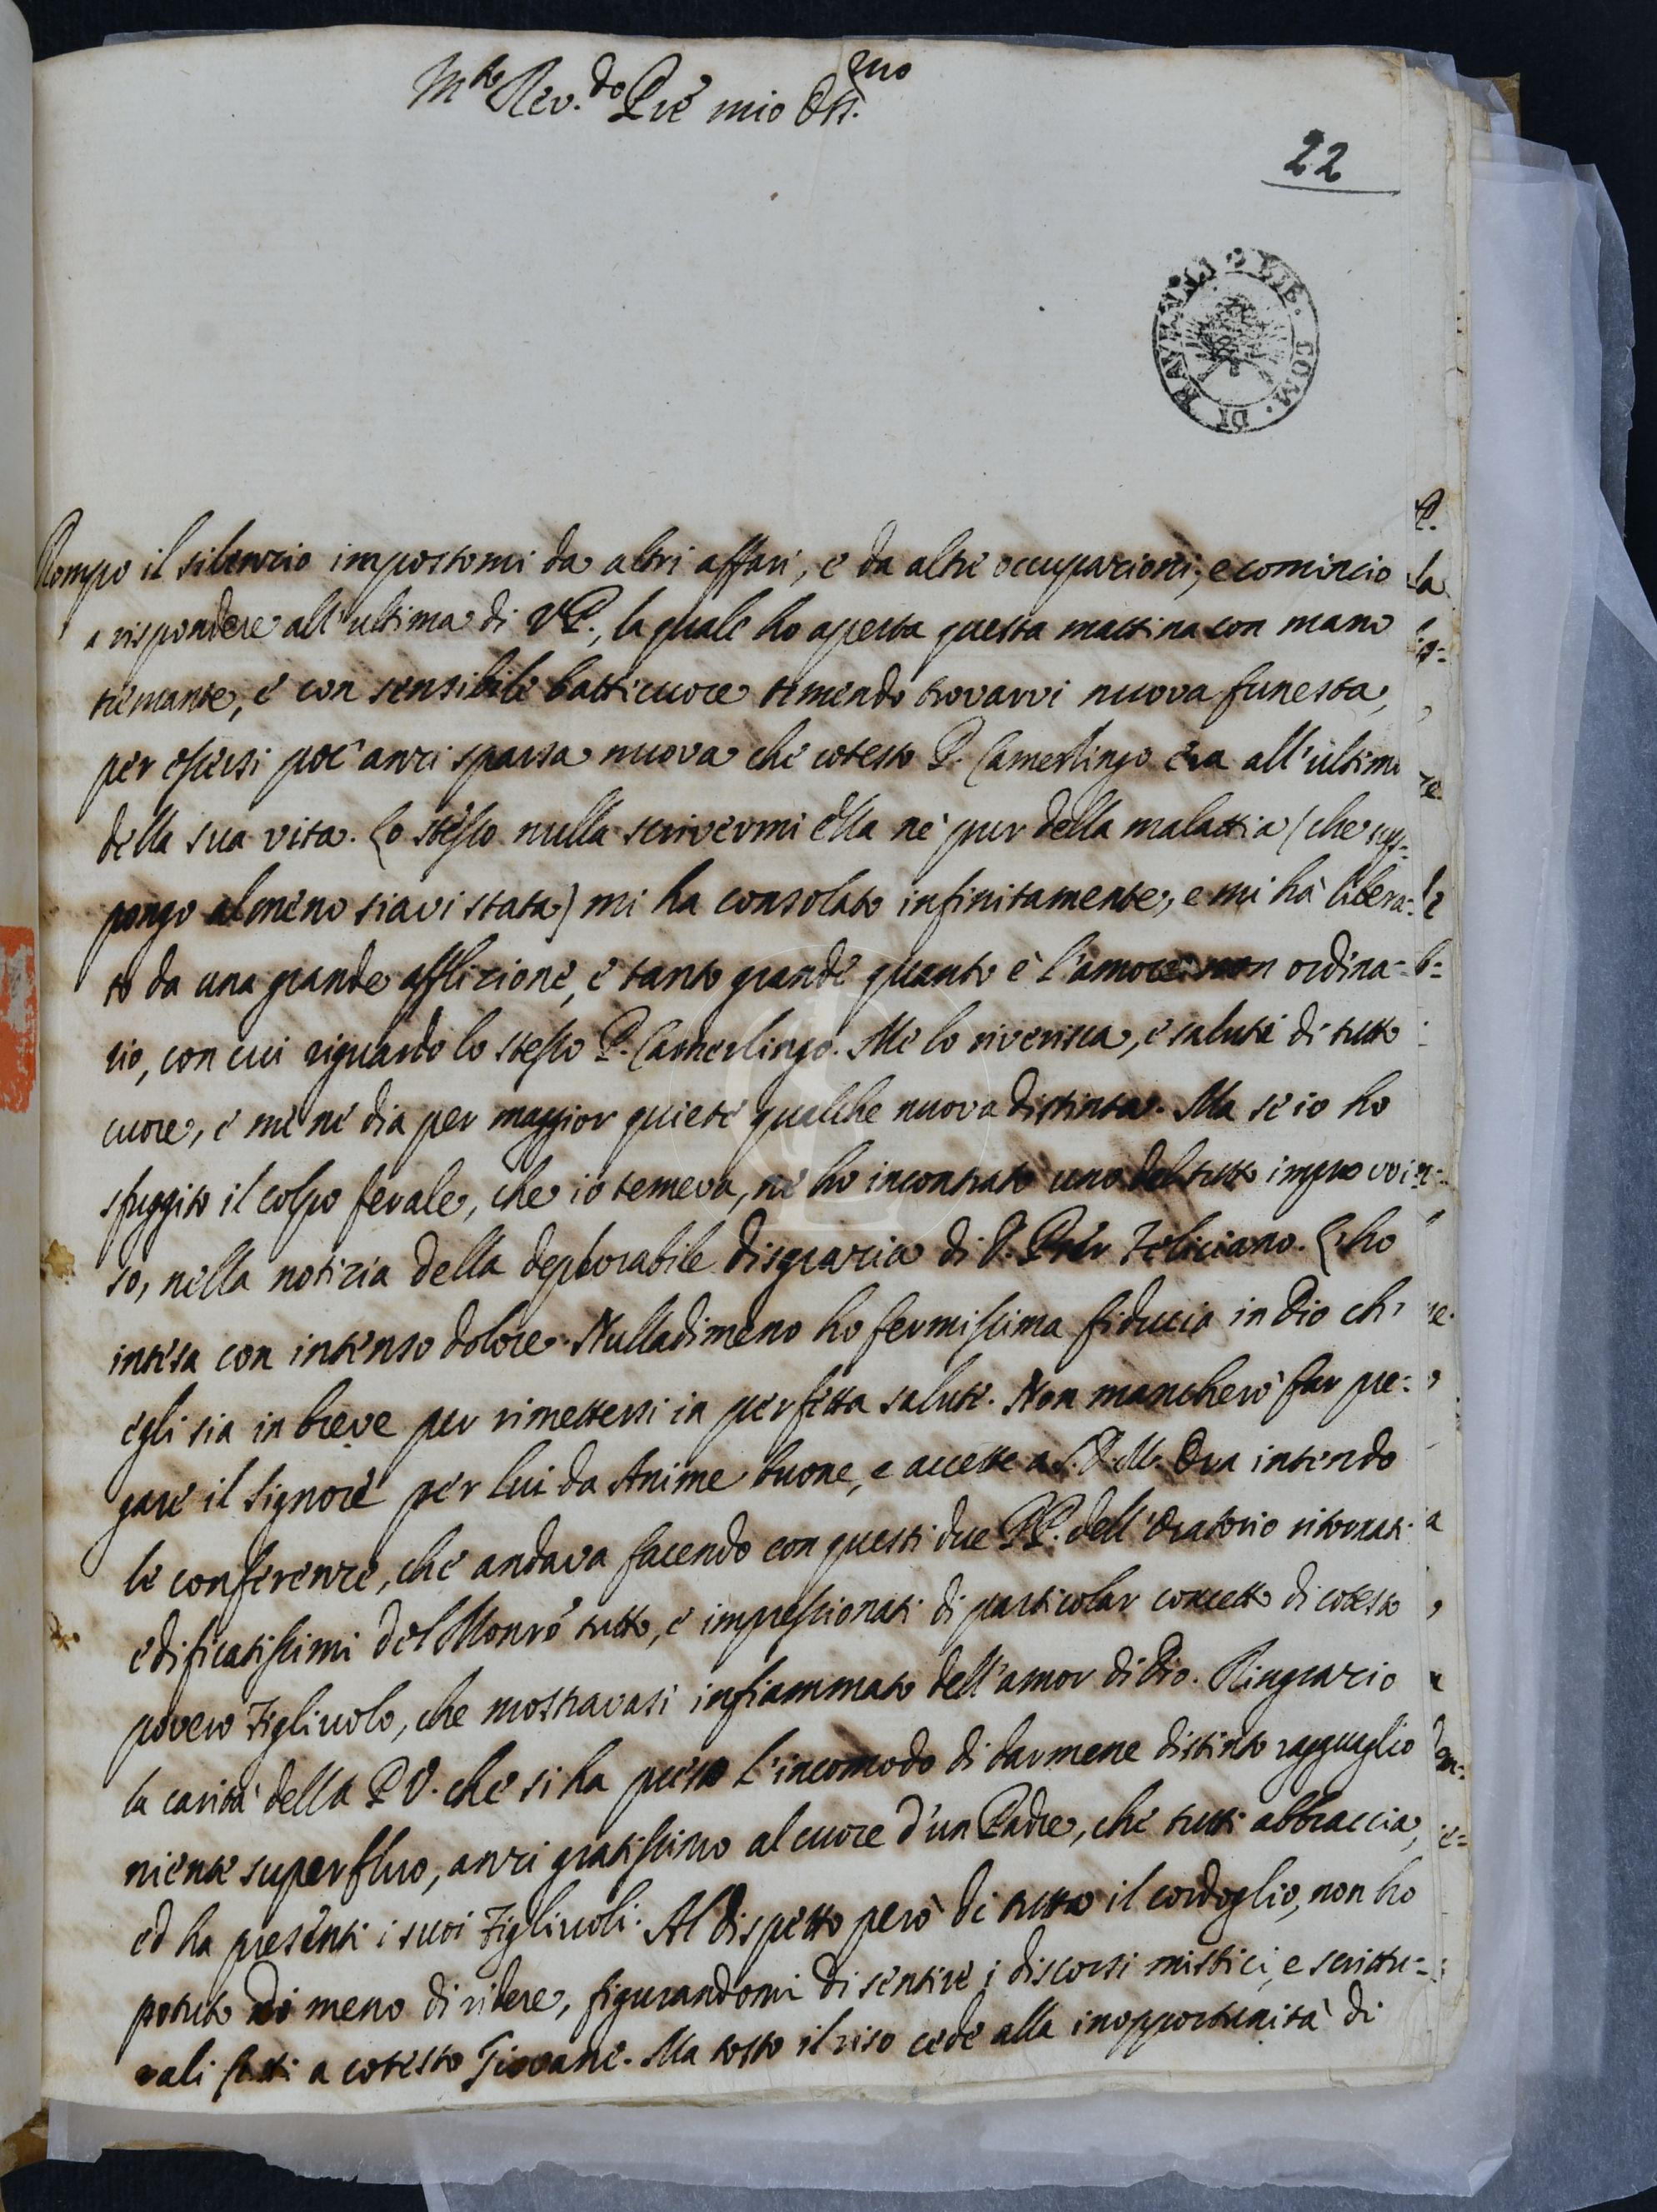 M.to Rev.do Pre mio Oss.mo
22
BIB. COM. DI RAVENNA
Rompo il silenzio impostomi da altri affari, e da altre occupazioni, e comincio
a rispondere all'ultima di V.P., la quale ho aperta questa mattina con mano
tremante, e con sensibile batticuore temendo trovarvi nuova funesta,
per essersi poc'anzi sparsa nuova che cotesto P. Camerlingo era all'ultimo
della sua vita. Lo stesso nulla scrivermi ella nè pur della malattia (che sup=
pongo almeno siavi stata) mi ha consolato infinitamente, e mi hà libera=
to da una grande afflizione, e tanto grande quanto è l'amore non ordina=
rio, con cui riguardo lo stesso P. Camerlingo. Me lo riverisca, e saluti di tutto
cuore, e me ne dia per maggior quiete qualche nuova distinta. Ma se io ho
sfuggito il colpo ferale, che io temeva, ne ho incontrato uno del tutto improvvi=
so, nella notizia della deplorabile disgrazia di D. Pier Feliciano. L'ho
intesa con intenso dolore. Nulladimeno ho fermissima fiducia in Dio ch'
egli sia in breve per rimettersi in perfetta salute. Non mancherò far pre=
gare il Signore per lui da Anime buone, e accette a S.D.M. Ora intendo
le conferenze, che andava facendo con questi due PP. dell'Oratorio ritornati
edificatissimi del Monrò tutto, e impressionati di particolar concetto di cotesto
povero Figliuolo, che mostravasi infiammato dell'amor di Dio. Ringrazio
la carità della P.V. che si ha preso l'incomodo di darmene distinto ragguaglio
niente superfluo, anzi gratissimo al cuore d'un Padre, che tutti abbraccia,
ed ha presenti i suoi Figliuoli. Al dispetto però di tutto il cordoglio, non ho
potuto di meno di ridere, figurandomi di sentire i discorsi mistici, e scrittu=
rali fatti a cotesto Giovane. Ma tosto il riso cede alla inopportunità di